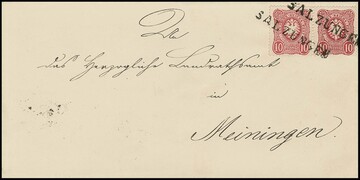 SALZUNGEN
SALZUNGEN
10 10
An
das Herzogliche Landrathsamt
in
Meiningen.